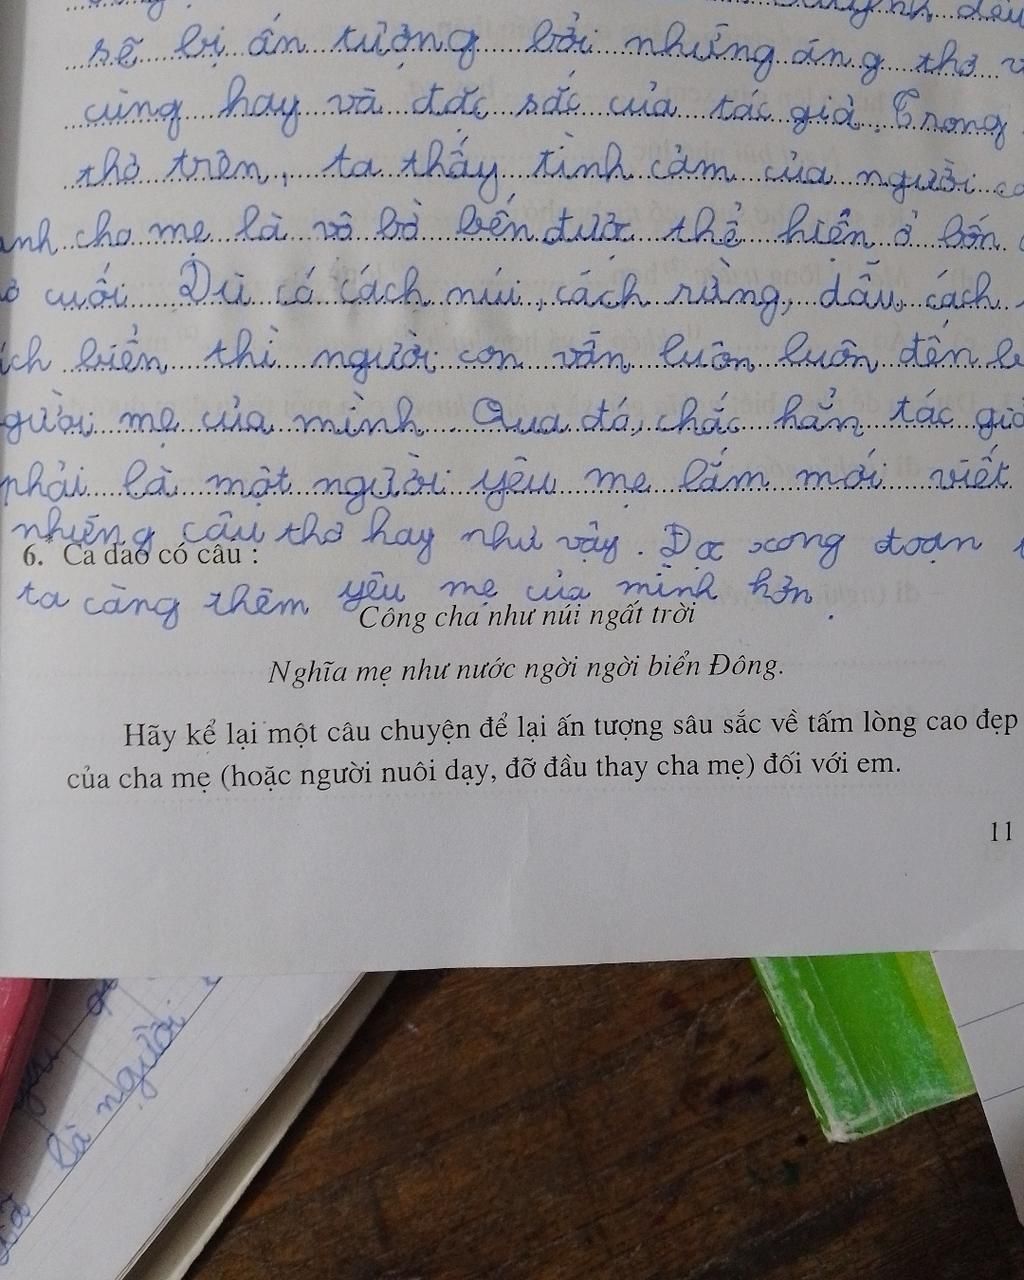 sẽ bị ấn tượng bởi những áng thơ
cùng hay và đặc sắc của tác giả. Trong
thơ trên, ta thấy tình cảm của người
cha mẹ là vô bờ bến, được thể hiện ở bốn
cuối. Dù có cách núi, cách rừng, dẫu cách
biển thì người con vẫn luôn luôn đến
mẹ của mình. Qua đó, chắc hẳn tác giả
phải là một người yêu mẹ lắm mới viết
những câu thơ hay như vậy. Đọc xong đoạn
6.* Ca dao có câu :
ta càng thêm yêu mẹ của mình hơn.
Công cha như núi ngất trời
Nghĩa mẹ như nước ngời ngời biển Đông.
Hãy kể lại một câu chuyện để lại ấn tượng sâu sắc về tấm lòng cao đẹp
của cha mẹ (hoặc người nuôi dạy, đỡ đầu thay cha mẹ) đối với em.
11
là người